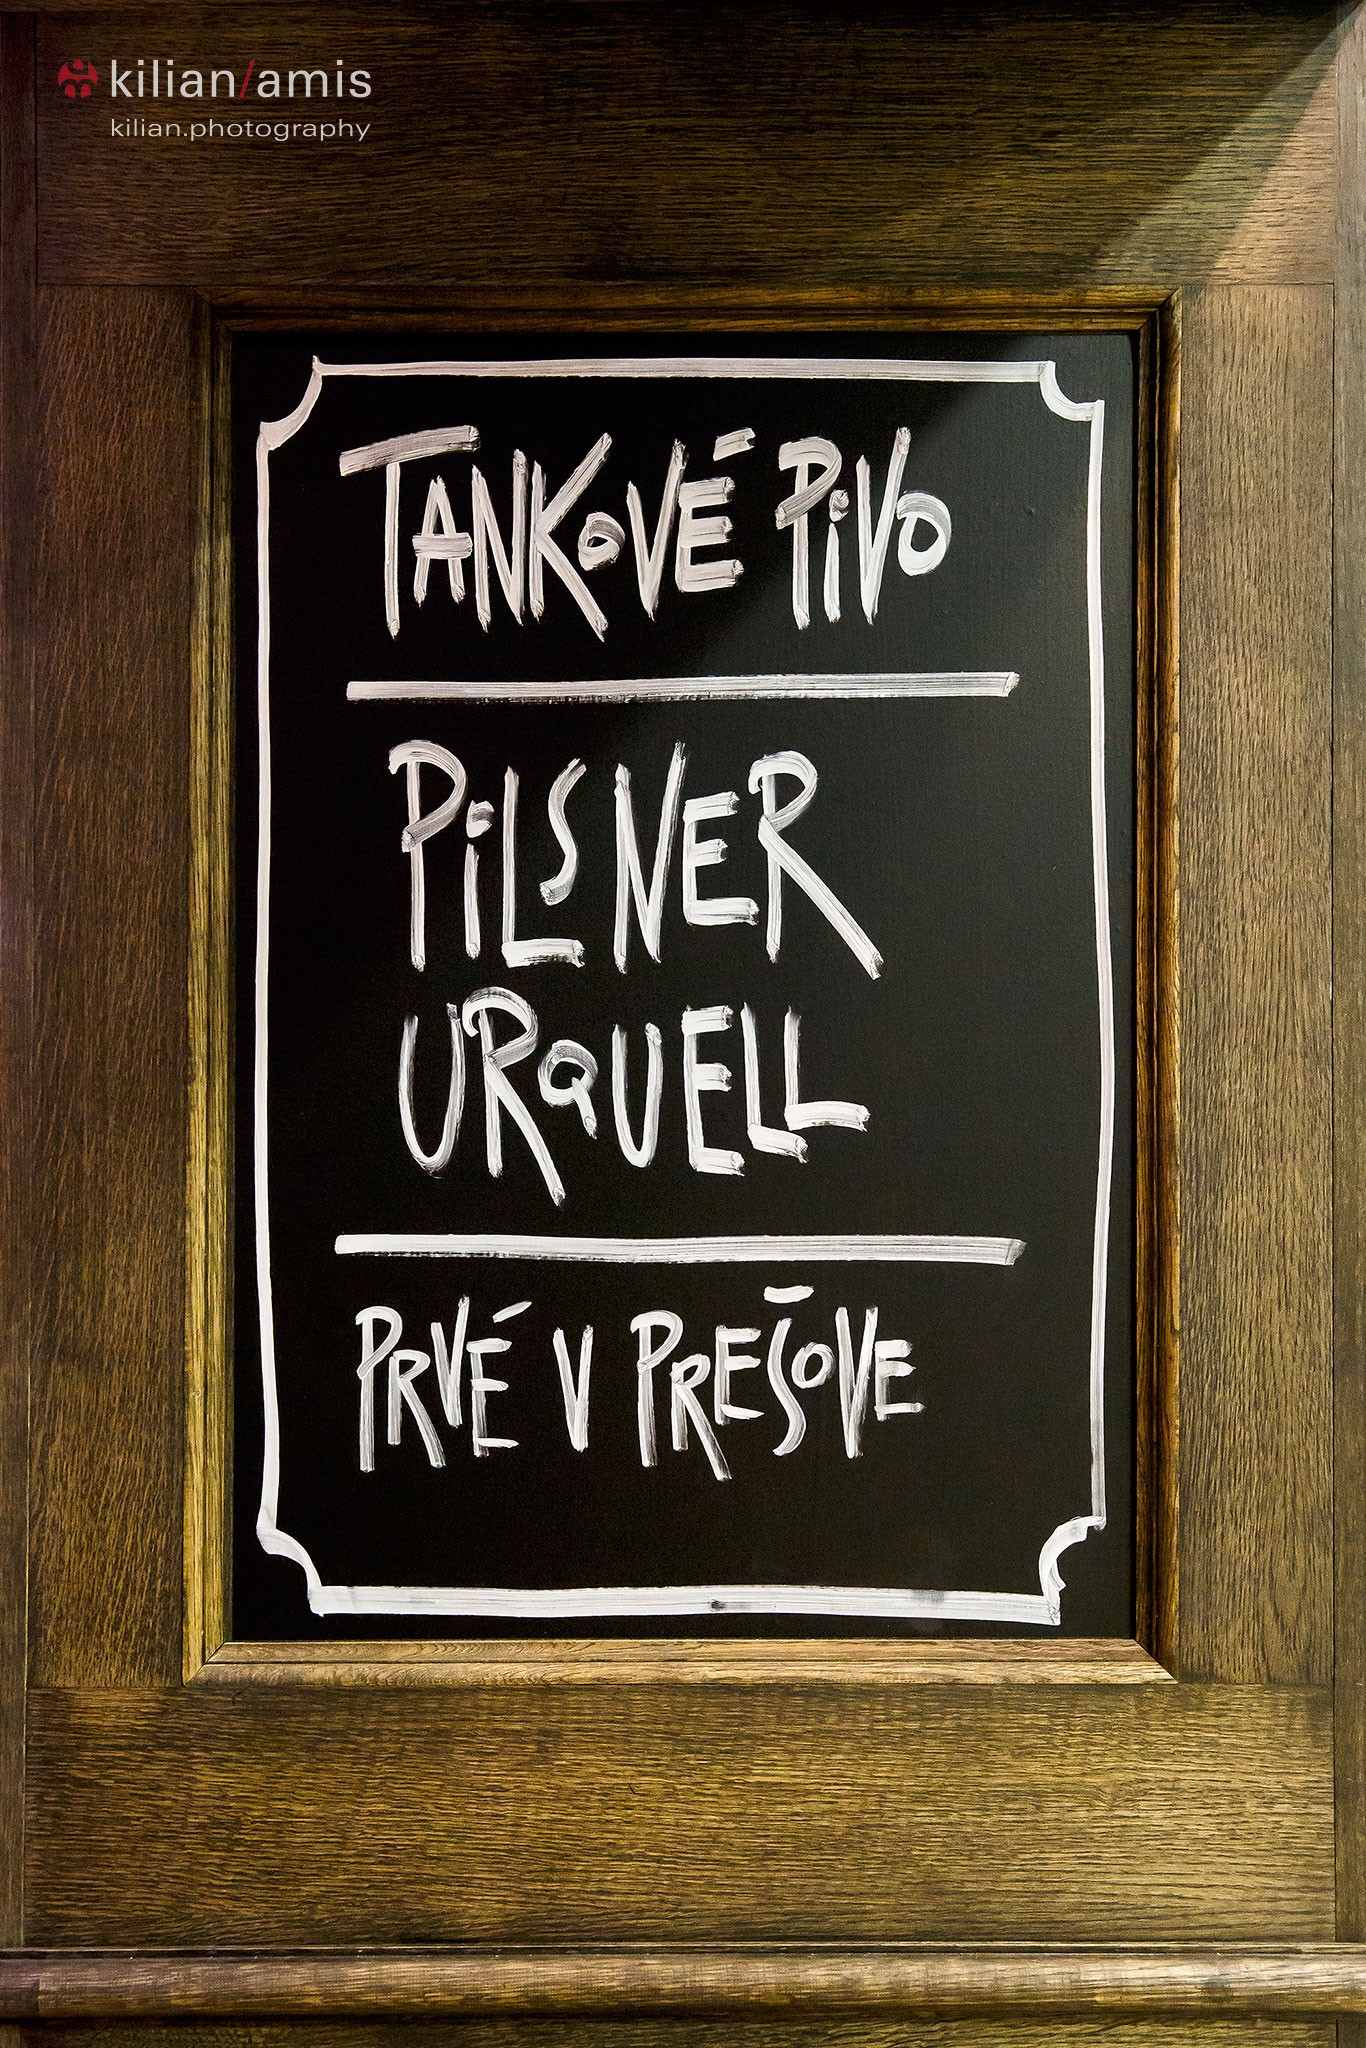 kilian/amis
kilian.photography
TANKOVÉ PiVO
PiLSNER
URQUELL
PRVÉ V PREŠOVE